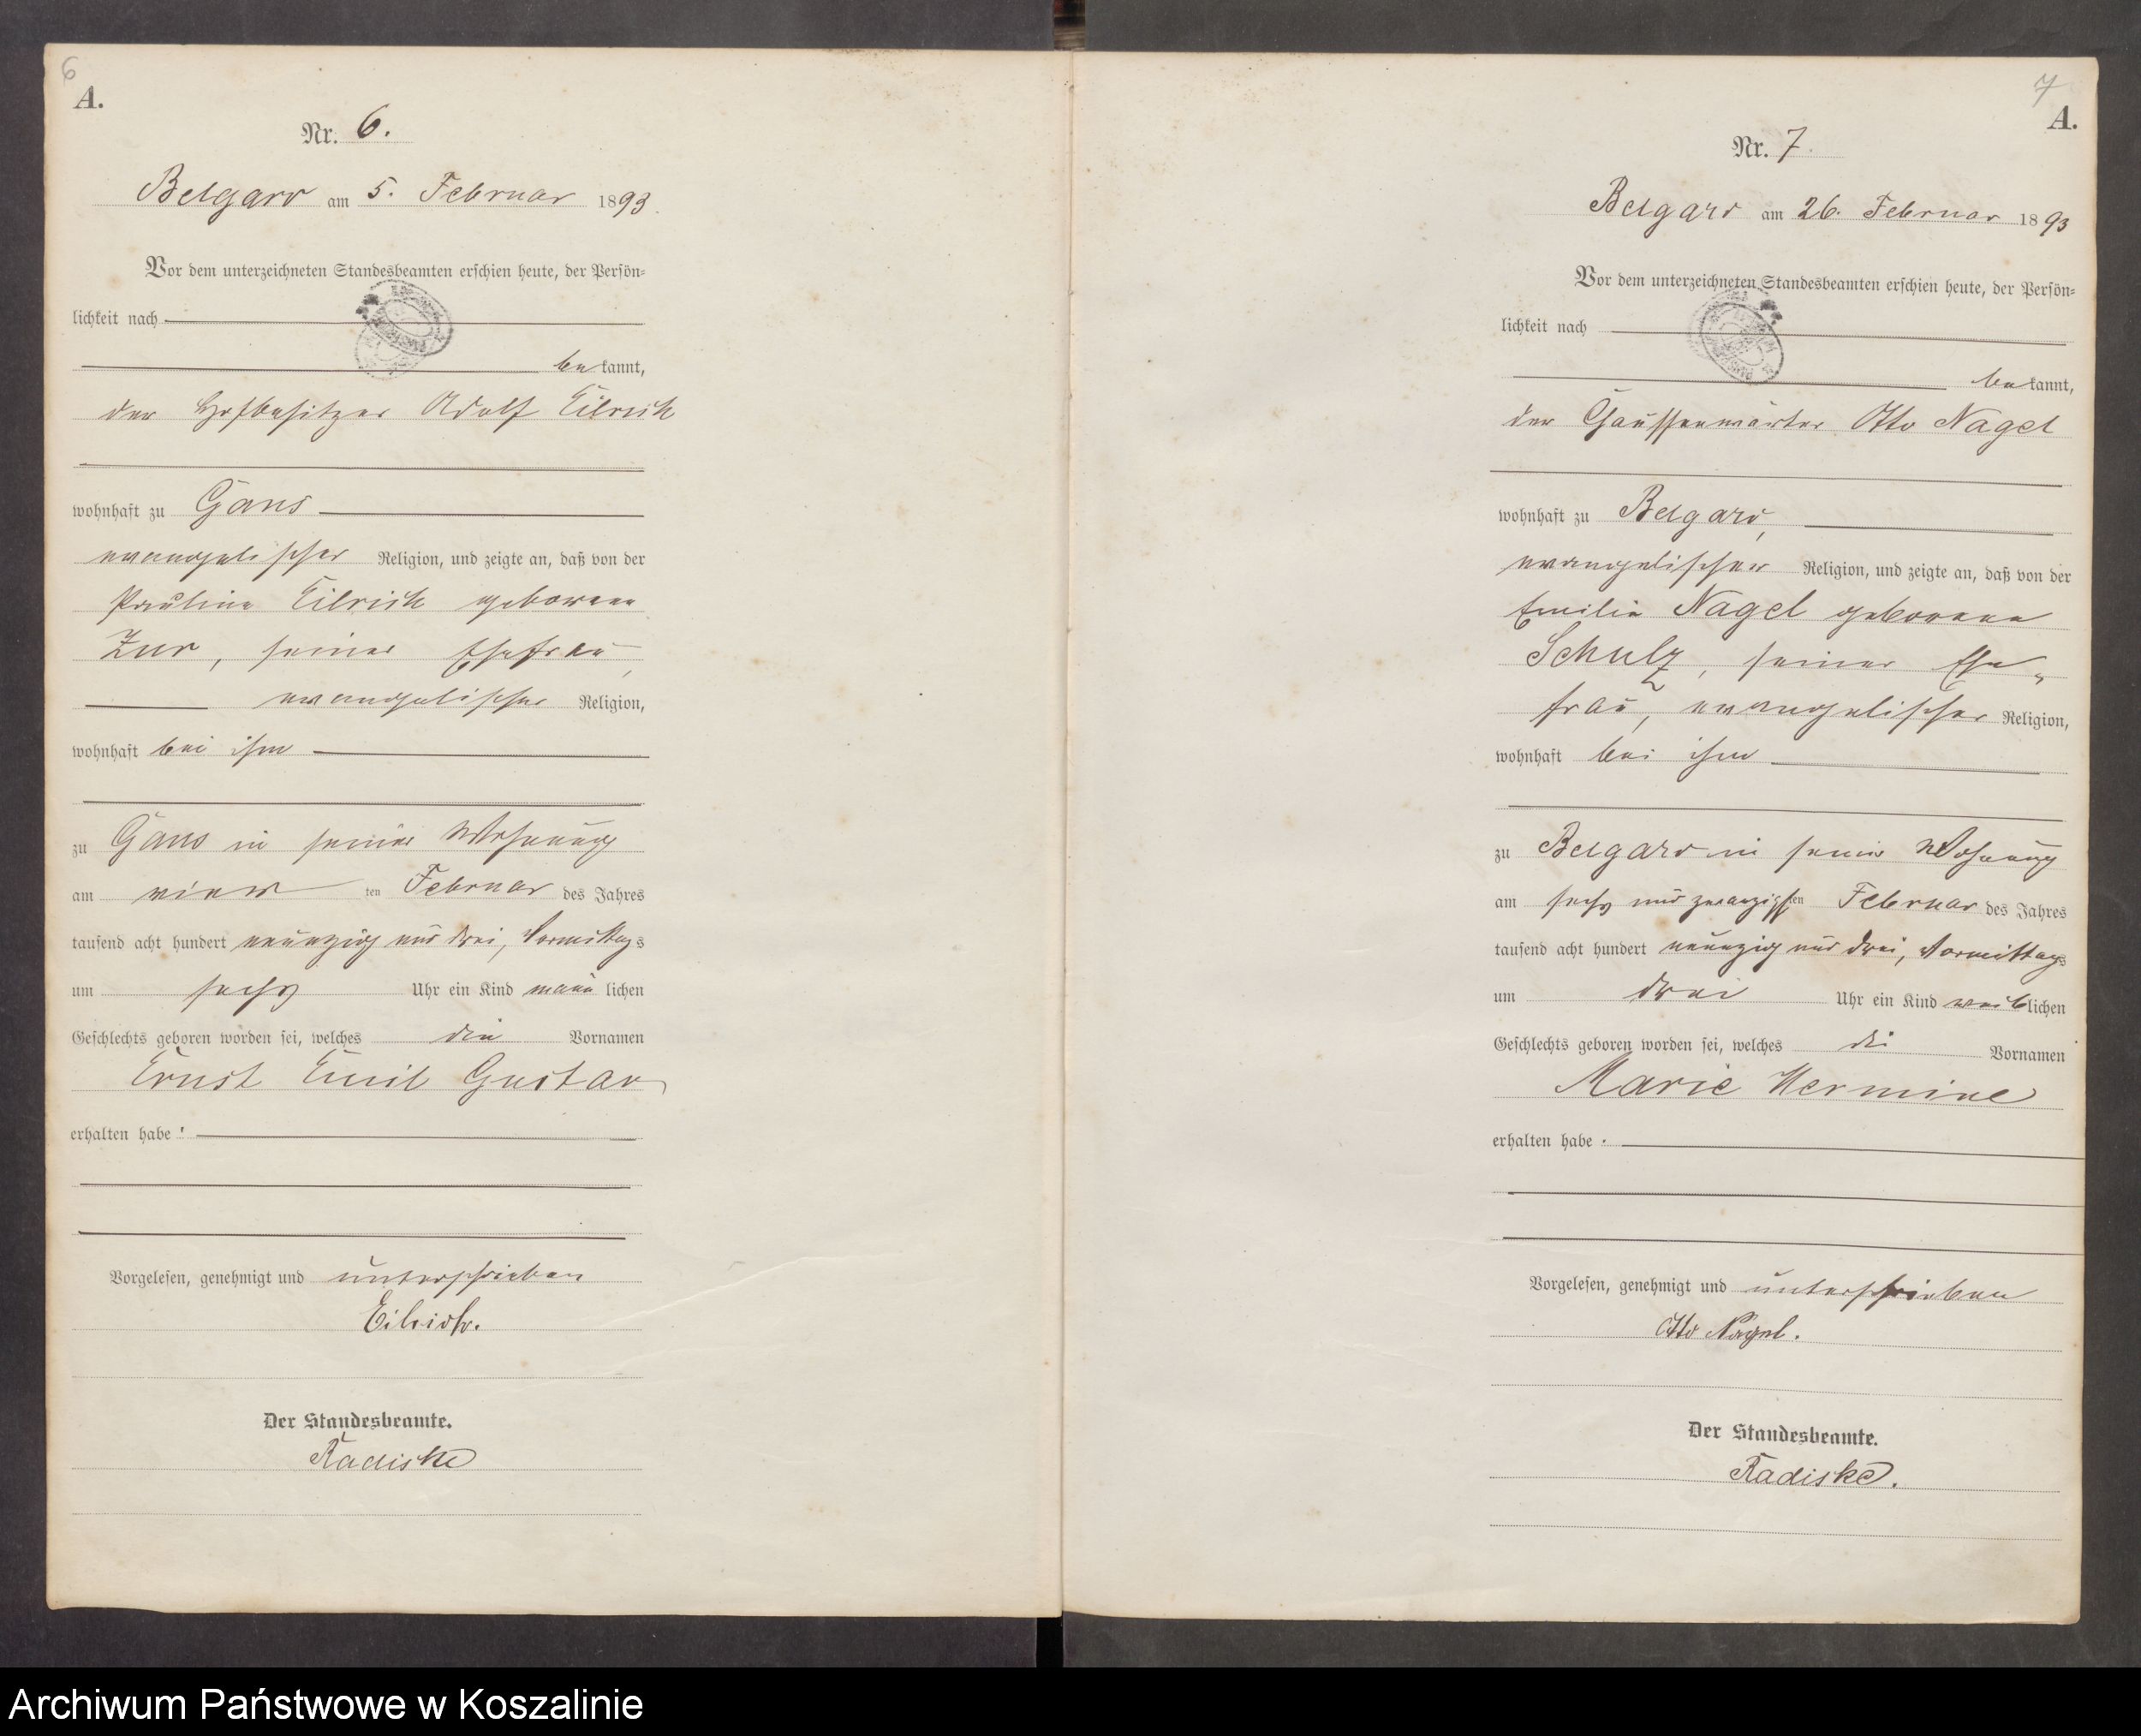 6
A.
Nr. 6.
Belgard am 5. Februar 1893.
Vor dem unterzeichneten Standesbeamten erschien heute, der Persön=
lichkeit nach
bekannt,
der Hofbesitzer Adolf Eilrich
wohnhaft zu Gans
evangelischer Religion, und zeigte an, daß von der
Pauline Eilrich geborene
Zur, seiner Ehefrau,
evangelischer Religion,
wohnhaft bei ihm
zu Gans in seiner Wohnung
am vier ten Februar des Jahres
tausend acht hundert neunzig und drei, Vormittags
um sechs Uhr ein Kind männlichen
Geschlechts geboren worden sei, welches die Vornamen
Ernst Emil Gustav
erhalten habe.
Vorgelesen, genehmigt und unterschrieben
Eilrich.
Der Standesbeamte.
Radiske
7
A.
Nr. 7.
Belgard am 26. Februar 1893
Vor dem unterzeichneten Standesbeamten erschien heute, der Persön=
lichkeit nach
bekannt,
der Chausseewärter Otto Nagel
wohnhaft zu Belgard,
evangelischer Religion, und zeigte an, daß von der
Emilie Nagel geborene
Schulz, seiner Ehe„
frau, evangelischer Religion,
wohnhaft bei ihm
zu Belgard in seiner Wohnung
am sechs und zwanzigsten Februar des Jahres
tausend acht hundert neunzig und drei, Vormittags
um drei Uhr ein Kind weiblichen
Geschlechts geboren worden sei, welches die Vornamen
Marie Hermine
erhalten habe.
Vorgelesen, genehmigt und unterschrieben
Otto Nagel.
Der Standesbeamte.
Radiske.
Archiwum Państwowe w Koszalinie